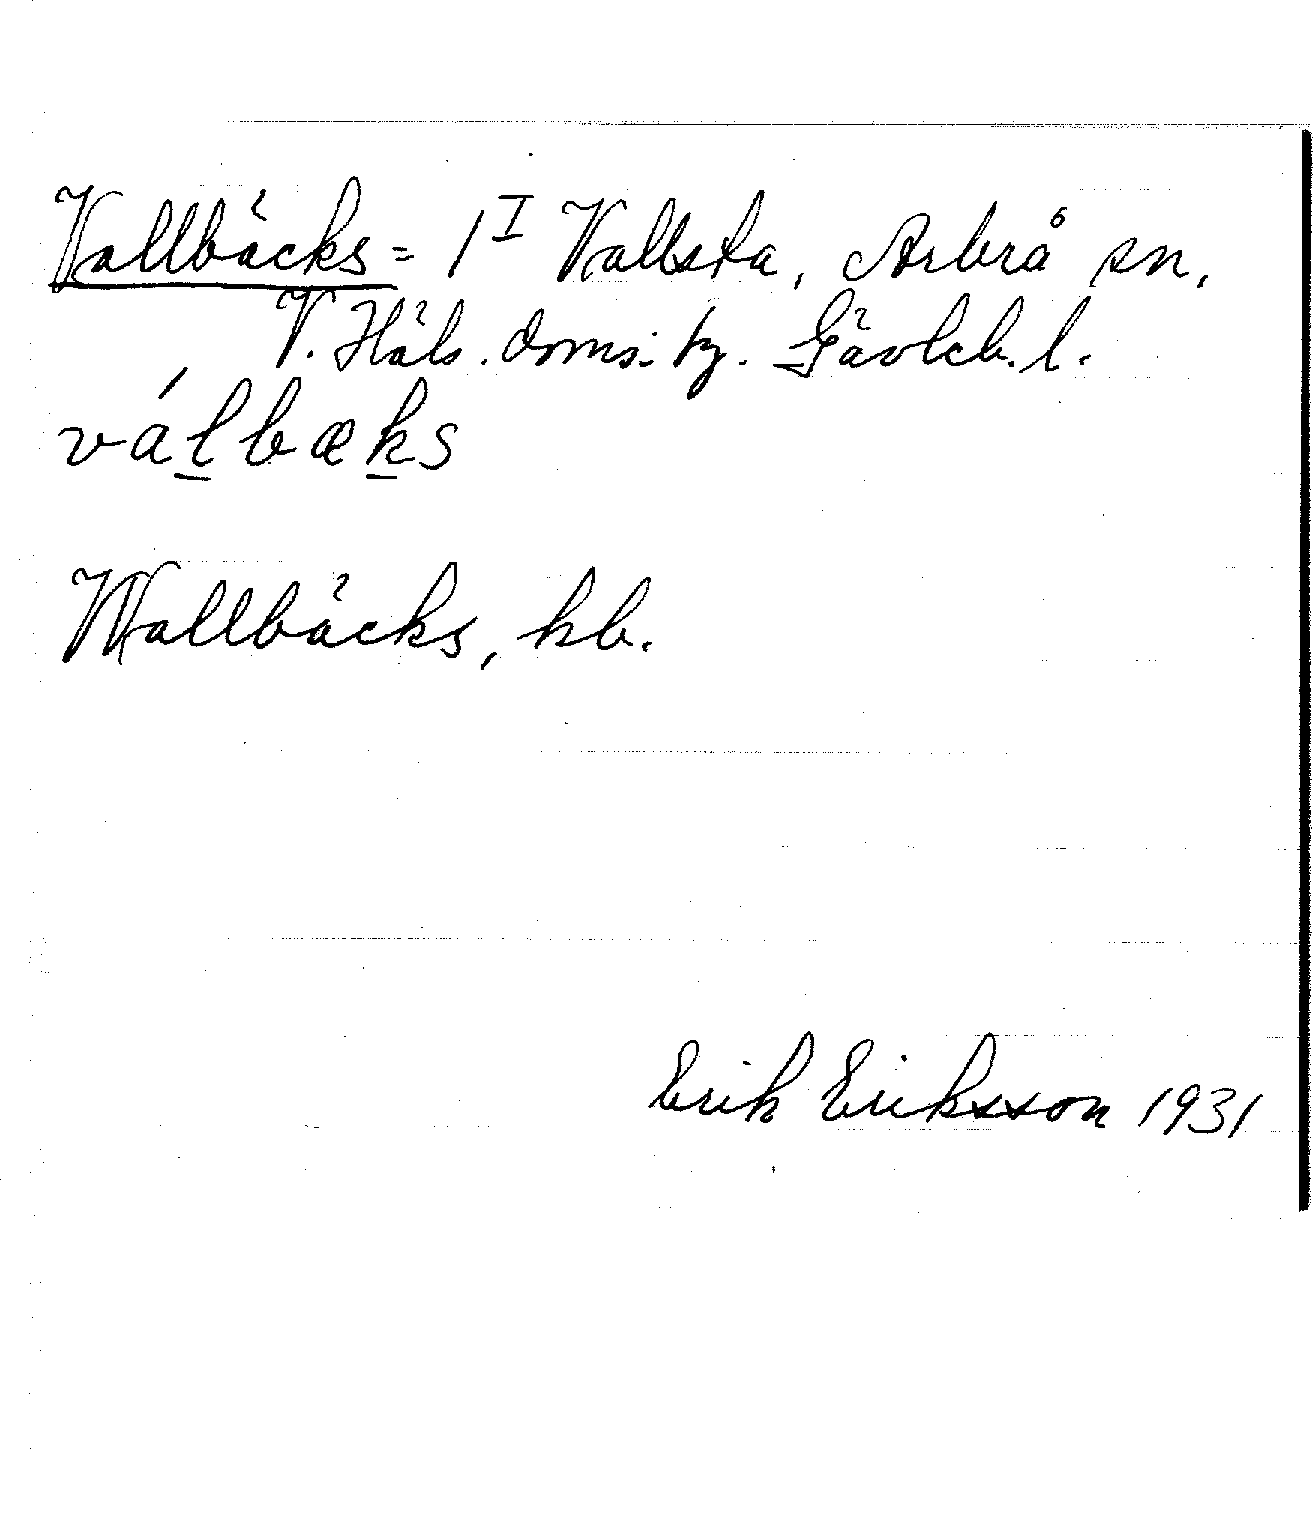 Vallbäcks = 1 I Vallsta, Arbrå sn,
V. Häls. doms. tg. Gävleb. l.
válbæks
Wallbäcks, kb.
Erik Eriksson 1931